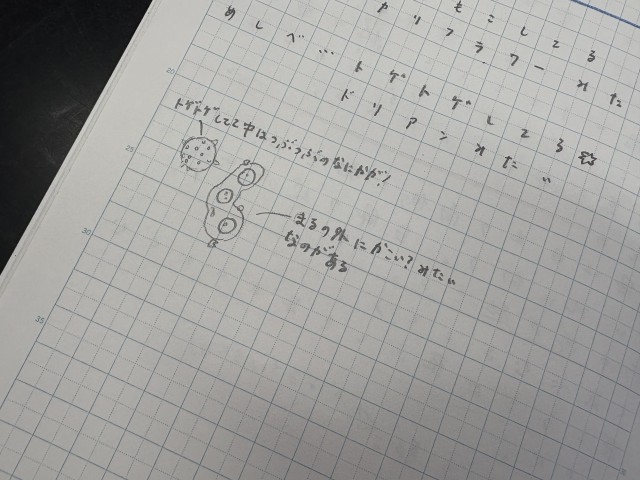 もこしてる
カリフラワーみた
めしべ… トゲトゲしてる
ドリアンみたい
20
トゲトゲしてて中はつぶつぶのなにかが!
25
まるの外にかこい?みたい
なのがある
30
35